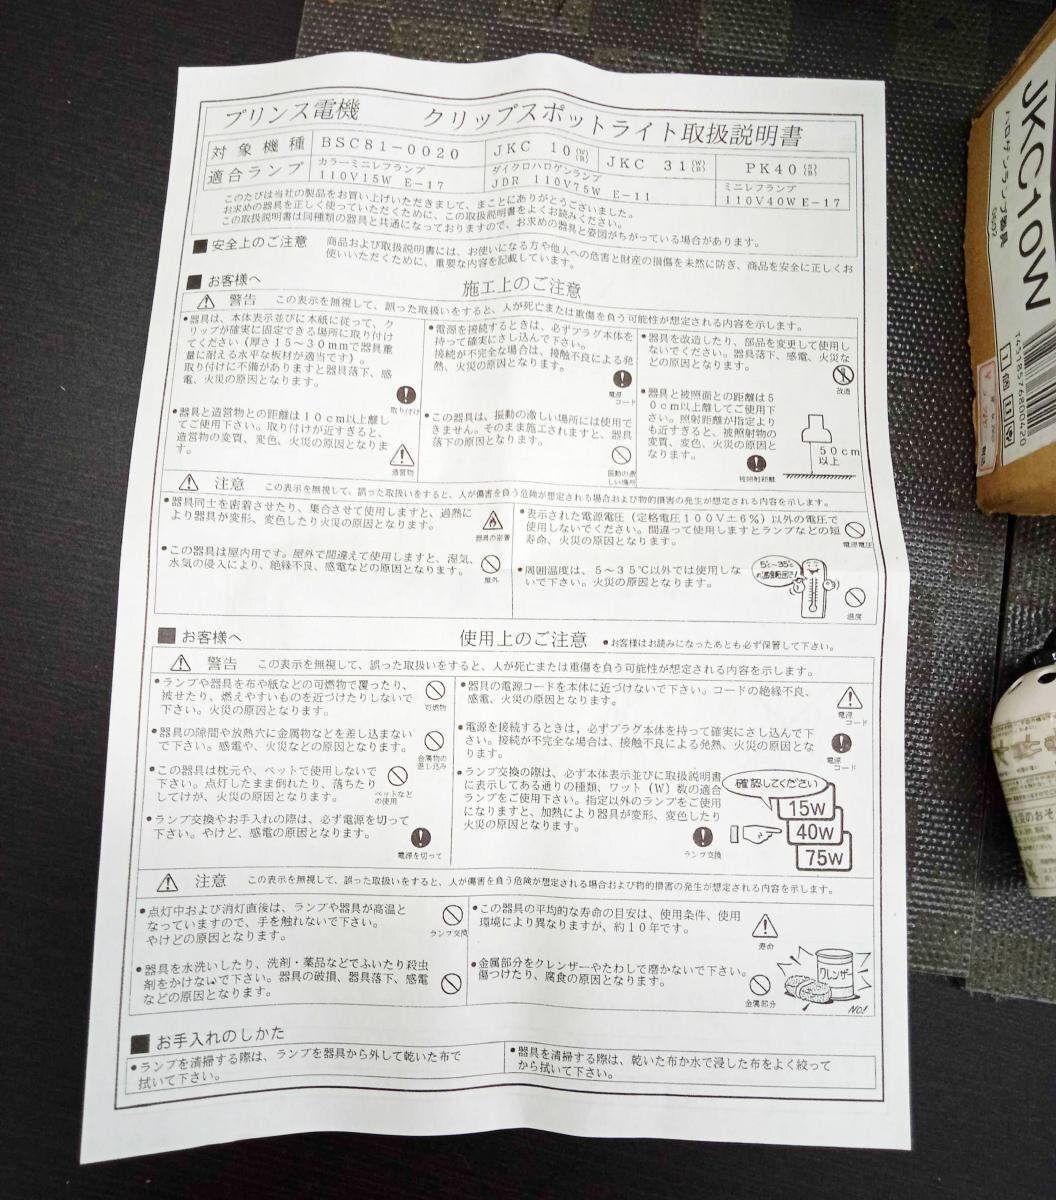 プリンス電機 クリップスポットライト取扱説明書
対象機種 BSC81-0020 JKC 10(W)(B) JKC 31(W)(B) PK40(S)(B)
適合ランプ カラーミニレフランプ 110V15W E-17 ダイクロハロゲンランプ JDR 110V75W E-11 ミニレフランプ 110V40W E-17
このたびは当社の製品をお買い上げいただきまして、まことにありがとうございました。
お求めの器具を正しく使っていただくために、この取扱説明書をよくお読みください。
この取扱説明書は同種類の器具と共通になっておりますので、お求めの器具と姿図がちがっている場合があります。
■安全上のご注意 商品および取扱説明書には、お使いになる方や他人への危害と財産の損傷を未然に防ぎ、商品を安全に正しくお
使いいただくために、重要な内容を記載しています。
■お客様へ 施工上のご注意
警告 この表示を無視して、誤った取扱いをすると、人が死亡または重傷を負う可能性が想定される内容を示します。
●器具は、本体表示並びに本紙に従って、ク
リップが確実に固定できる場所に取り付け
てください(厚さ15~30mmで器具重
量に耐える水平な板材が適当です)。
取り付けに不備がありますと器具落下、感
電、火災の原因となります。
取り付け
●器具と造営物との距離は10cm以上離し
てご使用下さい。取り付けが近すぎると、
造営物の変質、変色、火災の原因となりま
す。
造営物
●電源を接続するときは、必ずプラグ本体を
持って確実にさし込んで下さい。
接続が不完全な場合は、接触不良による発
熱、火災の原因となります。
電源
コード
●この器具は、振動の激しい場所には使用で
きません。そのまま施工されますと、器具
落下の原因となります。
振動の激
しい場所
●器具を改造したり、部品を変更して使用し
ないでください。器具落下、感電、火災な
どの原因となります。
改造
●器具と被照面との距離は5
0cm以上離してご使用下
さい。照射距離が指定より
も近すぎると、被照射物の
変質、変色、火災の原因と
なります。
被照射距離
50cm
以上
注意 この表示を無視して、誤った取扱いをすると、人が傷害を負う危険が想定される場合および物的損害の発生が想定される内容を示します。
●器具同士を密着させたり、集合させて使用しますと、過熱に
より器具が変形、変色したり火災の原因となります。
器具の密着
●この器具は屋内用です。屋外で間違えて使用しますと、湿気、
水気の侵入により、絶縁不良、感電などの原因となります。
屋外
●表示された電源電圧(定格電圧100V±6%)以外の電圧で
使用しないでください。間違って使用しますとランプなどの短
寿命、火災の原因となります。
電源電圧
●周囲温度は、5~35℃以外では使用しな
いで下さい。火災の原因となります。
5℃~35℃
の温度範囲で!
温度
■お客様へ 使用上のご注意 ●お客様はお読みになったあとも必ず保管して下さい。
警告 この表示を無視して、誤った取扱いをすると、人が死亡または重傷を負う可能性が想定される内容を示します。
●ランプや器具を布や紙などの可燃物で覆ったり、
被せたり、燃えやすいものを近づけたりしないで
下さい。火災の原因となります。
可燃物
●器具の隙間や放熱穴に金属物などを差し込まない
で下さい。感電や、火災などの原因となります。
金属物の
差し込み
●この器具は枕元や、ベットで使用しないで
下さい。点灯したまま倒れたり、落ちたり
してけが、火災の原因となります。
ベットなど
の使用
●ランプ交換やお手入れの際は、必ず電源を切って
下さい。やけど、感電の原因となります。
電源を切って
●器具の電源コードを本体に近づけないで下さい。コードの絶縁不良、
感電、火災の原因となります。
電源
コード
●電源を接続するときは、必ずプラグ本体を持って確実にさし込んで下
さい。接続が不完全な場合は、接触不良による発熱、火災の原因とな
ります。
電源
コード
●ランプ交換の際は、必ず本体表示並びに取扱説明書
に表示してある通りの種類、ワット(W)数の適合
ランプをご使用下さい。指定以外のランプをご使用
になりますと、加熱により器具が変形、変色したり
火災の原因となります。
ランプ交換
確認してください
15W
40W
75W
注意 この表示を無視して、誤った取扱いをすると、人が傷害を負う危険が想定される場合および物的損害の発生が想定される内容を示します。
●点灯中および消灯直後は、ランプや器具が高温と
なっていますので、手を触れないで下さい。
やけどの原因となります。
ランプ交換
●器具を水洗いしたり、洗剤・薬品などでふいたり殺虫
剤をかけないで下さい。器具の破損、器具落下、感電
などの原因となります。
●この器具の平均的な寿命の目安は、使用条件、使用
環境により異なりますが、約10年です。
寿命
●金属部分をクレンザーやたわしで磨かないで下さい。
傷つけたり、腐食の原因となります。
金属部分
クレンザー
NO!
■お手入れのしかた
●ランプを清掃する際は、ランプを器具から外して乾いた布で
拭いて下さい。
●器具を清掃する際は、乾いた布か水で浸した布をよく絞って
から拭いて下さい。
JKC10W
ハロゲンランプ器具
0602
T4978576800420